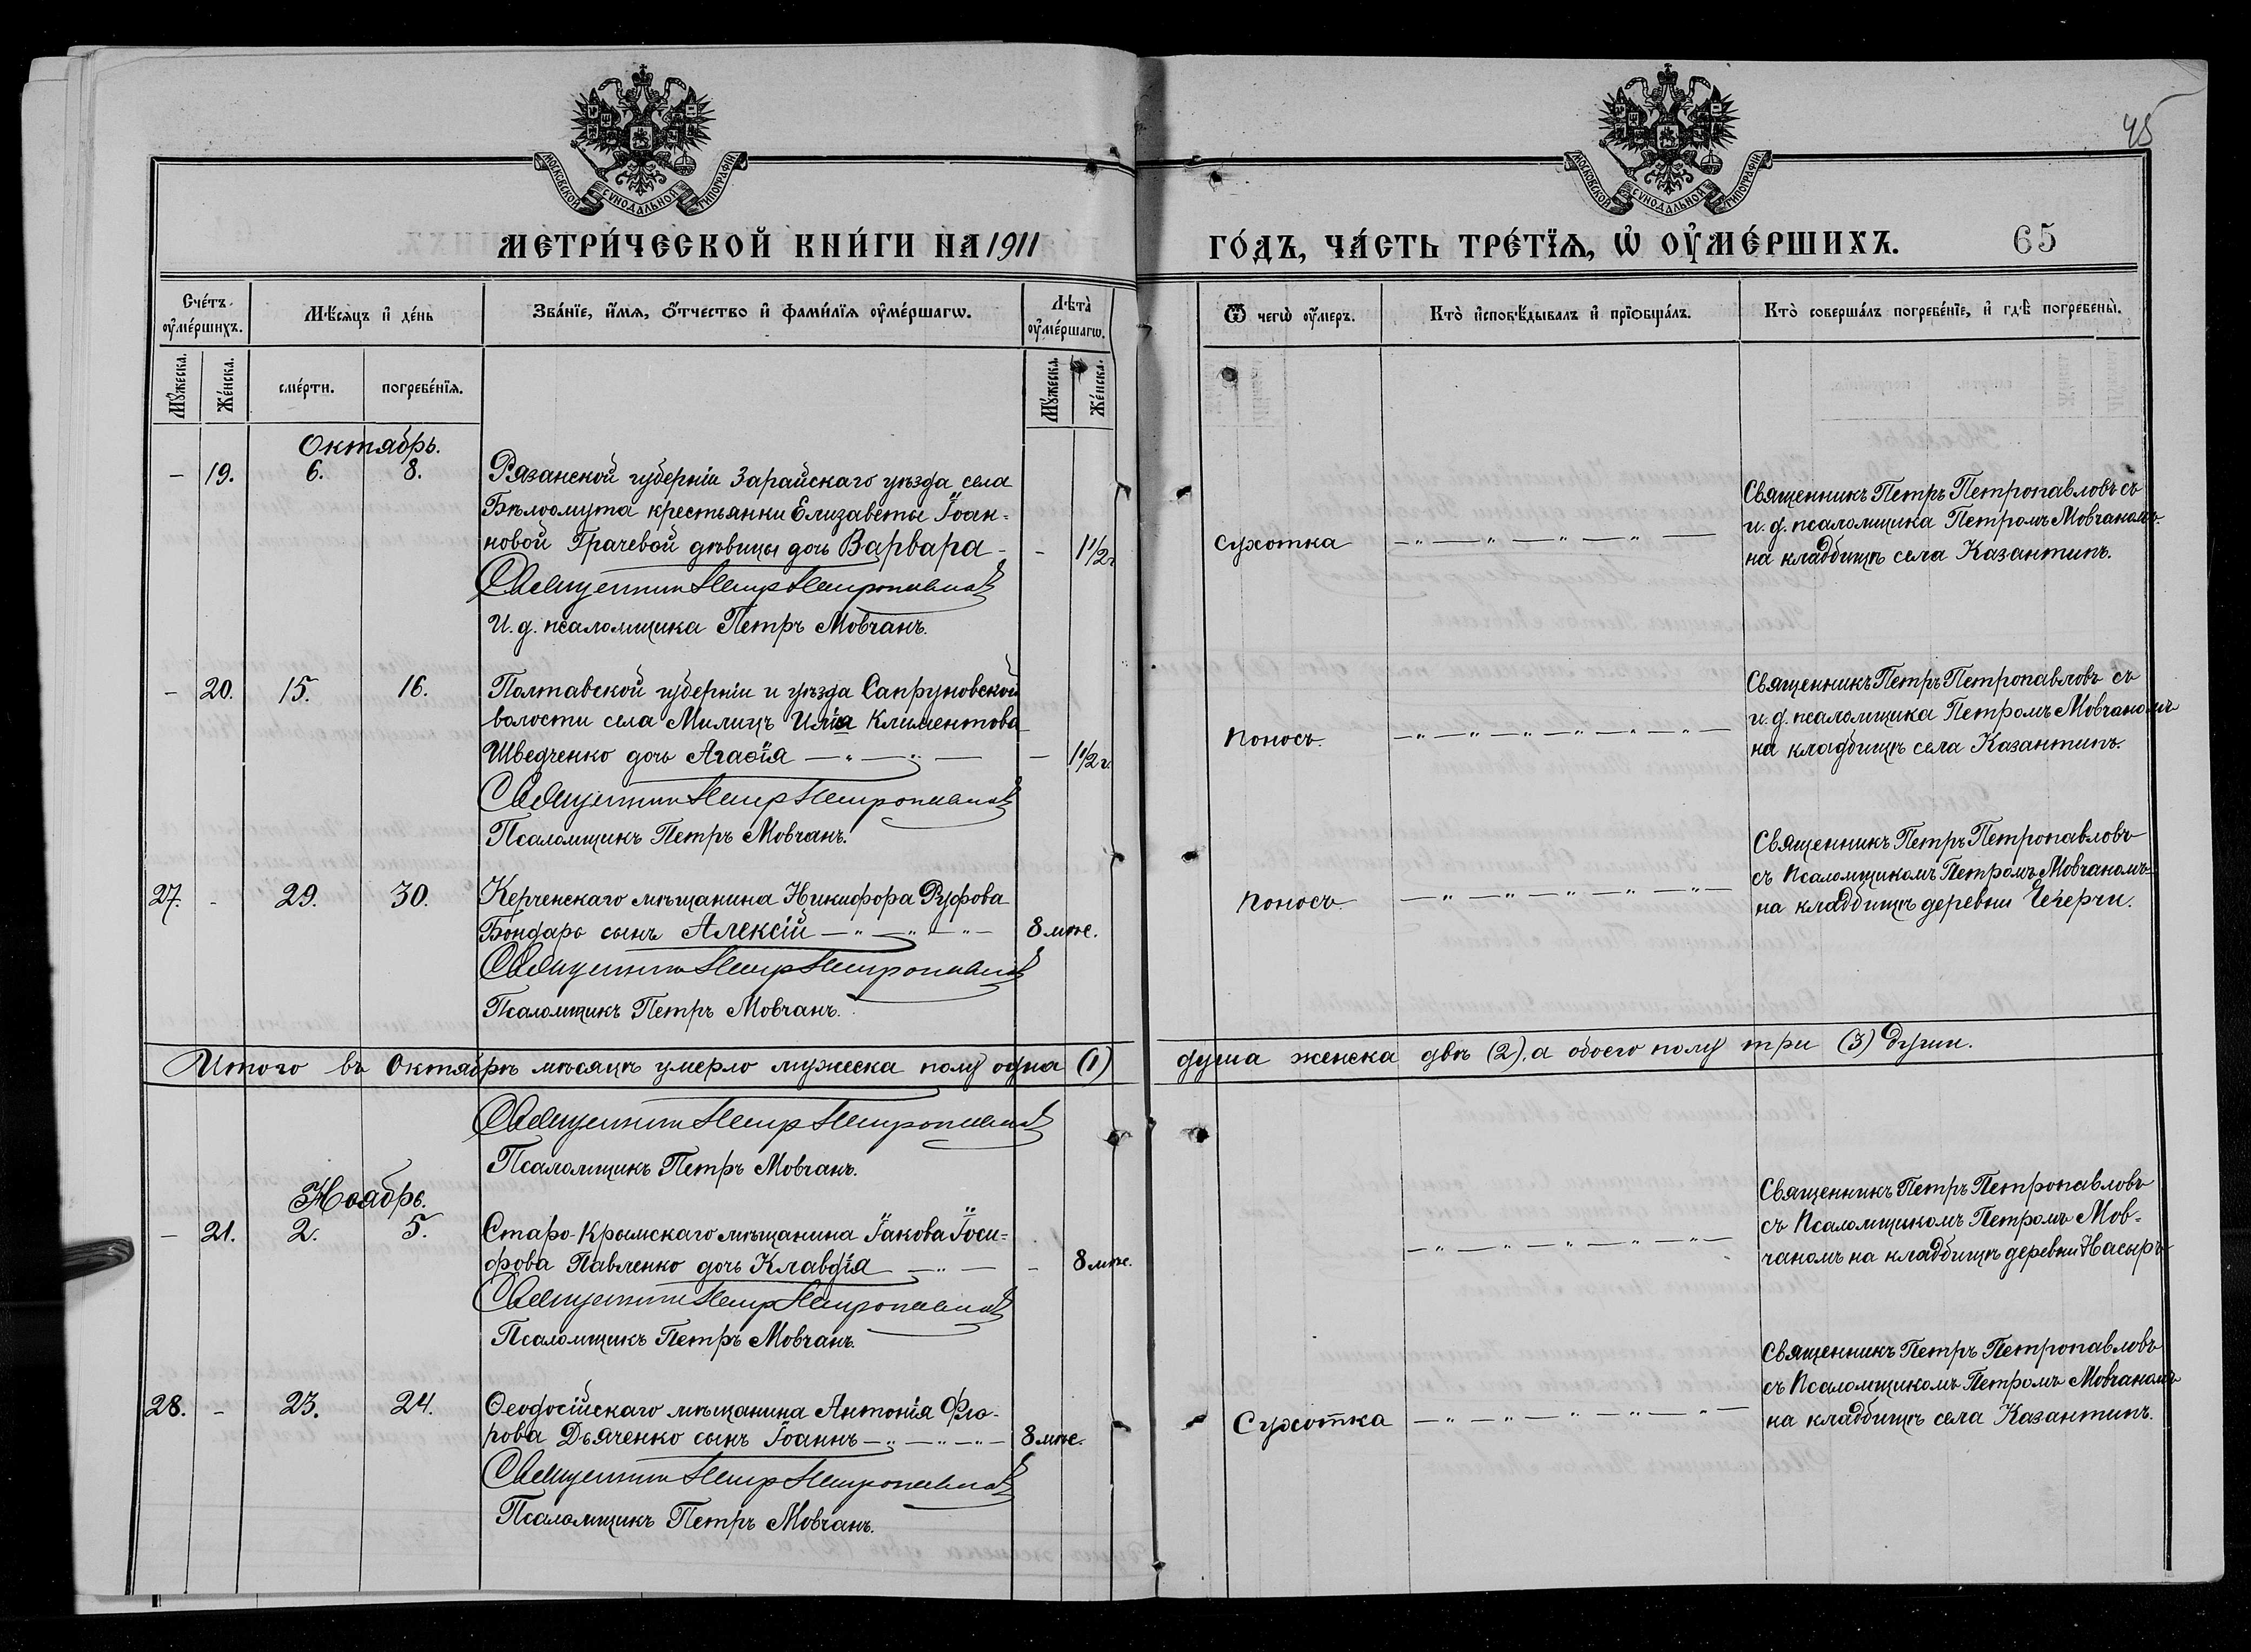 45
МОСКОВСКОЙ СУНОДАЛЬНОЙ ТИПОГРАФІИ
МОСКОВСКОЙ СУНОДАЛЬНОЙ ТИПОГРАФІИ
МЕТРИ́ЧЕСКОЙ КНИ́ГИ НА 1911
ГО́ДЪ, ЧА́СТЬ ТРЕ́ТЇѦ, Ѡ҆ ОУ҆МЕ́РШИХЪ. 65
Сче́тъ оу҆ме́ршихъ.
Мѣ́сѧцъ и҆ де́нь
Зва́нїе, и҆́мѧ, ѻ҆́тчество и҆ фами́лїѧ оу҆ме́ршагѡ.
Лѣ́та оу҆ме́ршагѡ.
Ѿ чегѡ̀ оу҆́мер.
Кто̀ и҆сповѣ́дывалъ и҆ прїѡбща́лъ.
Кто̀ соверша́лъ погребе́нїе, и҆ гдѣ̀ погребены̀.
Мꙋ́жеска.
Же́нска.
сме́рти.
погребе́нїѧ.
Мꙋ́жеска.
Же́нска.
Октябрь.
– 19. 6. 8.
Рязанской губерніи Зарайскаго уѣзда села
Бѣлоомута крестьянки Елизаветы Іоан-
новой Грачевой дѣвицы дочь Варвара – – 1 1/2 г.
Священникъ Петръ Петропавловъ
И. д. псаломщика Петръ Мовчанъ.
Сухотка – " – " – " – " –
Священникъ Петръ Петропавловъ съ
и. д. псаломщика Петромъ Мовчаномъ
на кладбищѣ села Казантипъ.
– 20. 15. 16.
Полтавской губерніи и уѣзда Сапруновской
волости села Милицъ Илія Климентова
Шведченко дочь Агаѳія – " – " – – 1 1/2 г.
Священникъ Петръ Петропавловъ
Псаломщикъ Петръ Мовчанъ.
Поносъ. – " – " – " – " – " –
Священникъ Петръ Петропавловъ съ
и. д. псаломщика Петромъ Мовчаномъ
на кладбищѣ села Казантипъ.
27. – 29. 30.
Керченскаго мѣщанина Никифора Руфова
Бондарь сынъ Алексій – " – " – " – 8 мѣс.
Священникъ Петръ Петропавловъ
Псаломщикъ Петръ Мовчанъ.
Поносъ. – " – " – " – " – " –
Священникъ Петръ Петропавловъ
съ Псаломщикомъ Петромъ Мовчаномъ
на кладбищѣ деревни Чегерчи.
Итого въ Октябрѣ мѣсяцѣ умерло мужеска полу одна (1)
душа женска двѣ (2), а обоего полу три (3) души.
Священникъ Петръ Петропавловъ
Псаломщикъ Петръ Мовчанъ.
Ноябрь.
– 21. 2. 5.
Старо-Крымскаго мѣщанина Іакова Іоси-
фова Павленко дочь Клавдія – " – – 8 мѣс.
Священникъ Петръ Петропавловъ
Псаломщикъ Петръ Мовчанъ.
– " – " – " – " – " –
Священникъ Петръ Петропавловъ
съ Псаломщикомъ Петромъ Мов-
чаномъ на кладбищѣ деревни Насыръ
28. – 23. 24.
Ѳеодосійскаго мѣщанина Антонія Фло-
рова Дьяченко сынъ Іоаннъ – " – " – " – 8 мѣс.
Священникъ Петръ Петропавловъ
Псаломщикъ Петръ Мовчанъ.
Сухотка – " – " – " – " – " –
Священникъ Петръ Петропавловъ
съ Псаломщикомъ Петромъ Мовчаномъ
на кладбищѣ села Казантипъ.